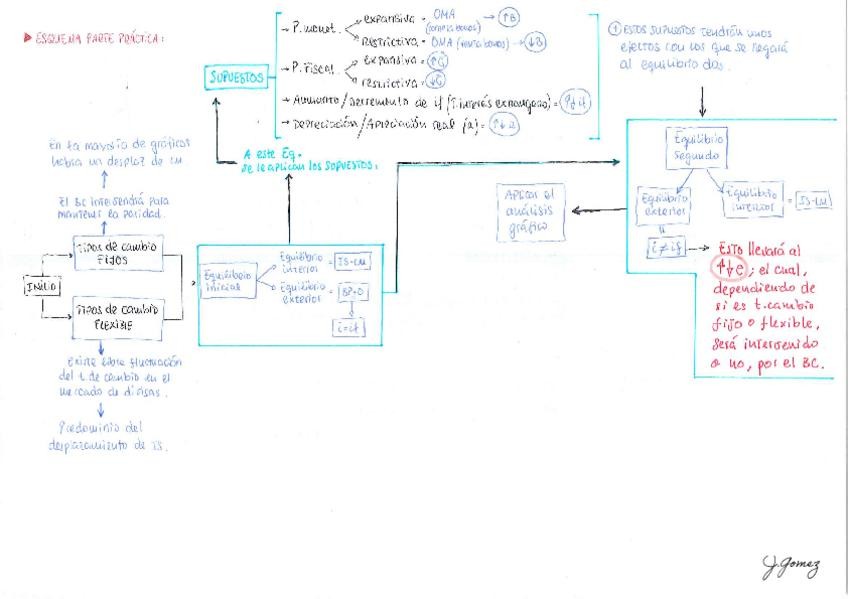 ▶ ESQUEMA PARTE PRÁCTICA:
SUPUESTOS
- P. monet.
expansiva = OMA (compra bonos) → ↑B
Restrictiva = OMA (venta bonos) → ↓B
- P. Fiscal
expansiva = ↑G
restrictiva = ↓G
- Aumento / Decremento de if (T. interés extranjero) = ↑↓if
- Depreciación / Apreciación real (a) =
① ESTOS SUPUESTOS tendrán unos
efectos con los que se llegará
al equilibrio dos.
A este Eq.
se le aplican los SUPUESTOS:
En la mayoría de gráficos
habrá un desplaz de LM
El BC intervendrá para
mantener la paridad.
INICIO
TIPOS DE CAMBIO
FIJOS
TIPOS DE CAMBIO
FLEXIBLE
Existe libre fluctuación
del t. de cambio en el
mercado de divisas.
Predominio del
desplazamiento de IS.
Equilibrio
inicial
Equilibrio
interior = IS-LM
Equilibrio
exterior = BP=0
i=if
Aplicar el
análisis
gráfico
Equilibrio
Segundo
Equilibrio
exterior
Equilibrio
interior = IS-LM
i≠if
Esto llevará al
↑↓e; el cual,
dependiendo de
si es t. cambio
fijo o flexible,
será intervenido
o no, por el BC.
J.Gomez